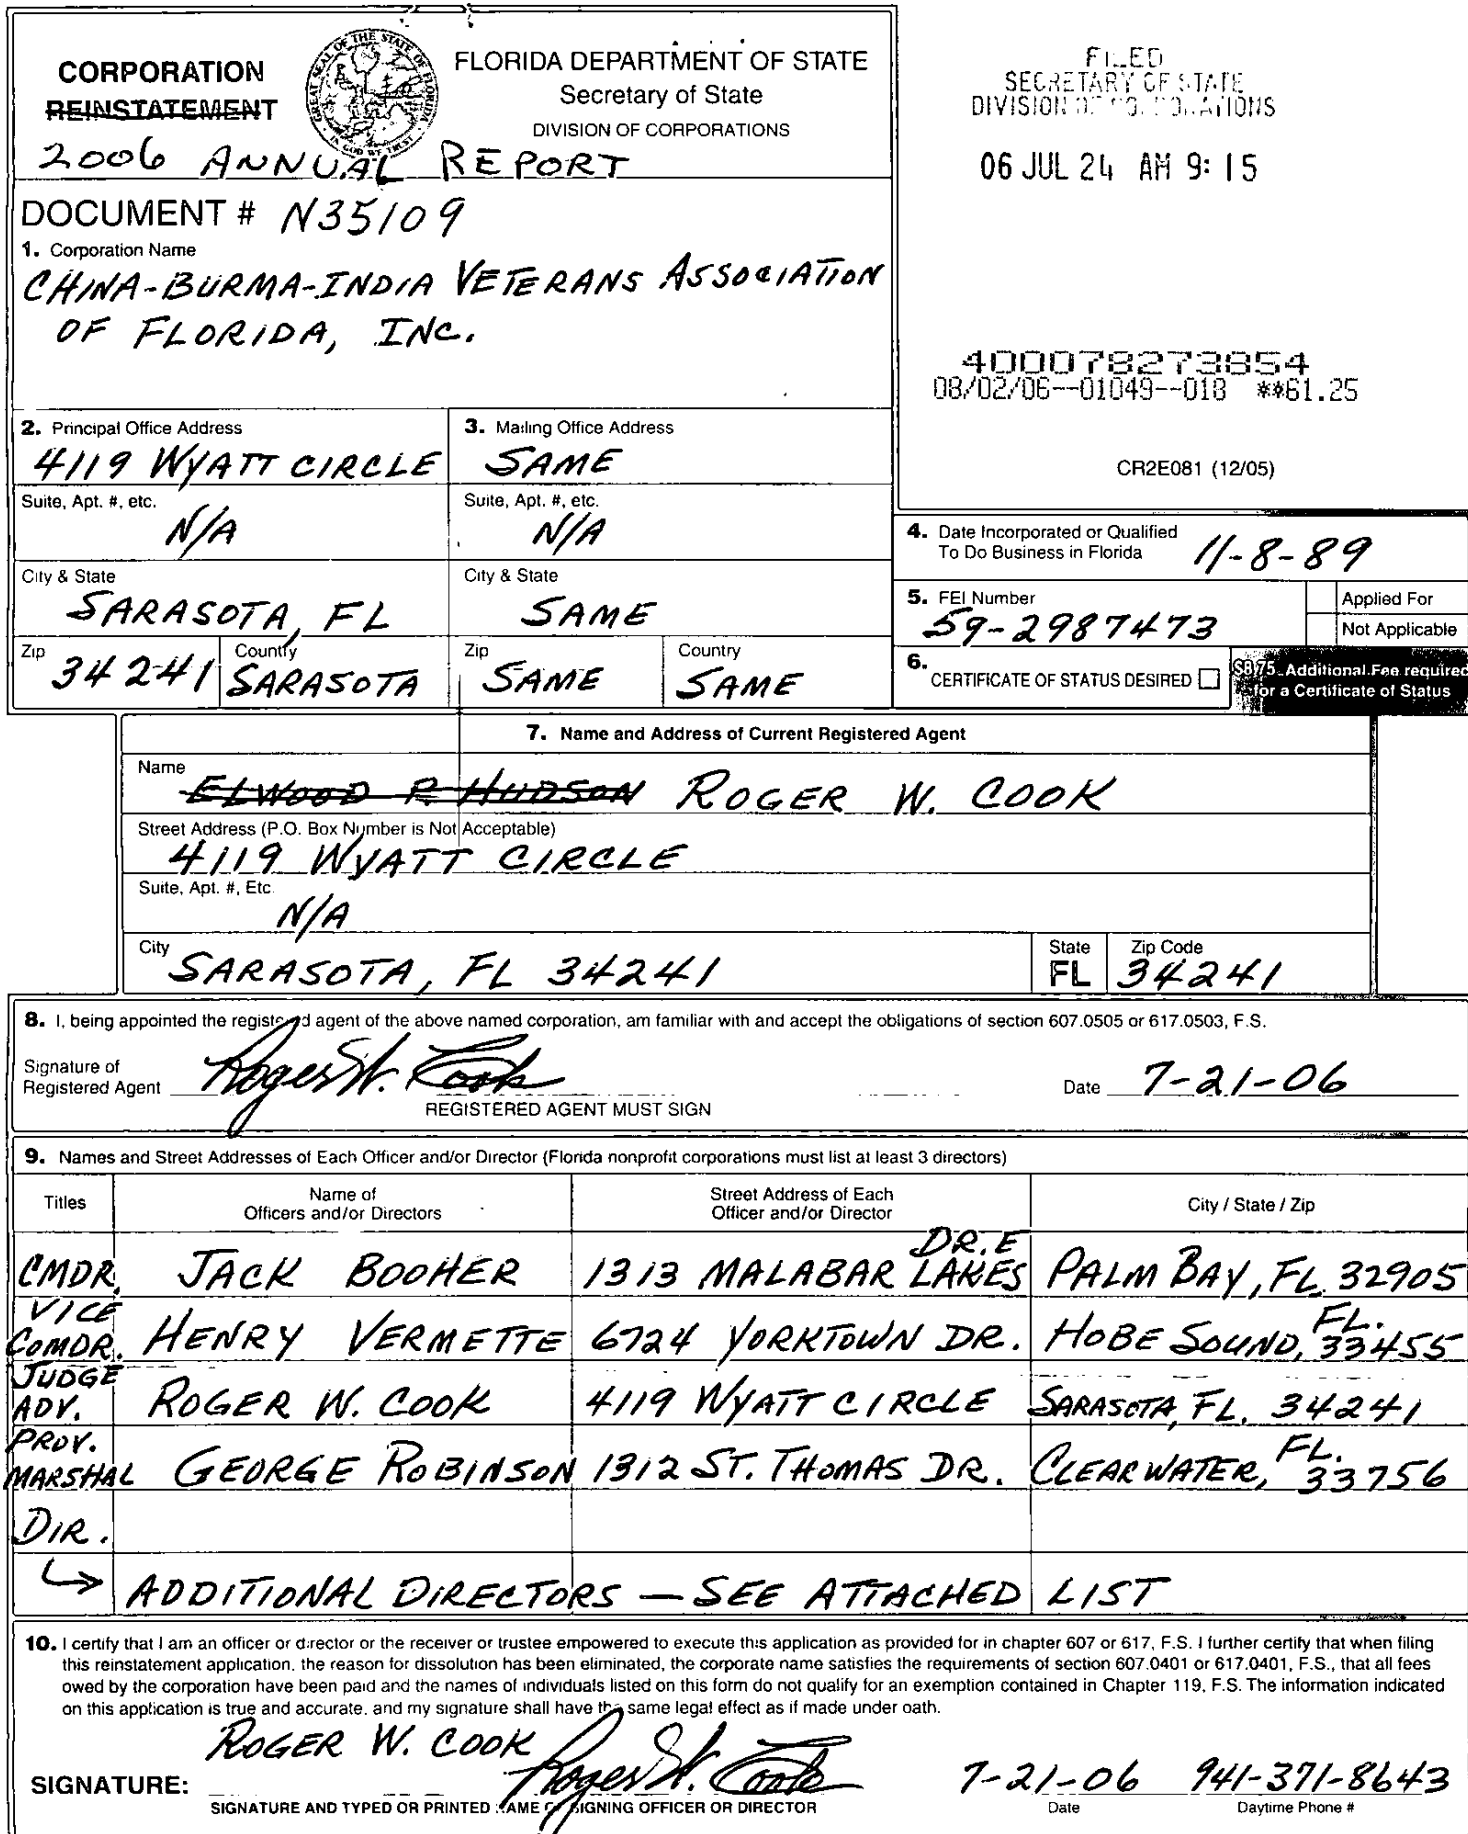 CORPORATION
REINSTATEMENT
GREAT SEAL OF THE STATE OF FLORIDA
IN GOD WE TRUST
FLORIDA DEPARTMENT OF STATE
Secretary of State
DIVISION OF CORPORATIONS
2006 ANNUAL REPORT
FILED
SECRETARY OF STATE
DIVISION OF CORPORATIONS
06 JUL 24 AM 9:15
DOCUMENT # N35109
1. Corporation Name
CHINA-BURMA-INDIA VETERANS ASSOCIATION
OF FLORIDA, INC.
400078273854
08/02/06--01049--018 **61.25
CR2E081 (12/05)
2. Principal Office Address
4119 WYATT CIRCLE
3. Mailing Office Address
SAME
Suite, Apt. #, etc.
N/A
Suite, Apt. #, etc.
N/A
City & State
SARASOTA, FL
City & State
SAME
Zip
34241
Country
SARASOTA
Zip
SAME
Country
SAME
4. Date Incorporated or Qualified
To Do Business in Florida
11-8-89
5. FEI Number
59-2987473
Applied For
Not Applicable
6.
CERTIFICATE OF STATUS DESIRED
$8.75 Additional Fee required
for a Certificate of Status
7. Name and Address of Current Registered Agent
Name
ELWOOD P. HUDSON ROGER W. COOK
Street Address (P.O. Box Number is Not Acceptable)
4119 WYATT CIRCLE
Suite, Apt. #, Etc.
N/A
City
SARASOTA, FL 34241
State
FL
Zip Code
34241
8. I, being appointed the registered agent of the above named corporation, am familiar with and accept the obligations of section 607.0505 or 617.0503, F.S.
Signature of
Registered Agent
Roger W. Cook
REGISTERED AGENT MUST SIGN
Date 7-21-06
9. Names and Street Addresses of Each Officer and/or Director (Florida nonprofit corporations must list at least 3 directors)
Titles
Name of
Officers and/or Directors
Street Address of Each
Officer and/or Director
City / State / Zip
CMDR. JACK BOOHER 1313 MALABAR LAKES DR. E PALM BAY, FL. 32905
VICE COMDR. HENRY VERMETTE 6724 YORKTOWN DR. HOBE SOUND, FL. 33455
JUDGE ADV. ROGER W. COOK 4119 WYATT CIRCLE SARASOTA, FL. 34241
PROV. MARSHAL GEORGE ROBINSON 1312 ST. THOMAS DR. CLEARWATER, FL. 33756
DIR.
↳ ADDITIONAL DIRECTORS — SEE ATTACHED LIST
10. I certify that I am an officer or director or the receiver or trustee empowered to execute this application as provided for in chapter 607 or 617, F.S. I further certify that when filing
this reinstatement application, the reason for dissolution has been eliminated, the corporate name satisfies the requirements of section 607.0401 or 617.0401, F.S., that all fees
owed by the corporation have been paid and the names of individuals listed on this form do not qualify for an exemption contained in Chapter 119, F.S. The information indicated
on this application is true and accurate, and my signature shall have the same legal effect as if made under oath.
SIGNATURE: ROGER W. COOK Roger W. Cook 7-21-06 941-371-8643
SIGNATURE AND TYPED OR PRINTED NAME OF SIGNING OFFICER OR DIRECTOR
Date
Daytime Phone #